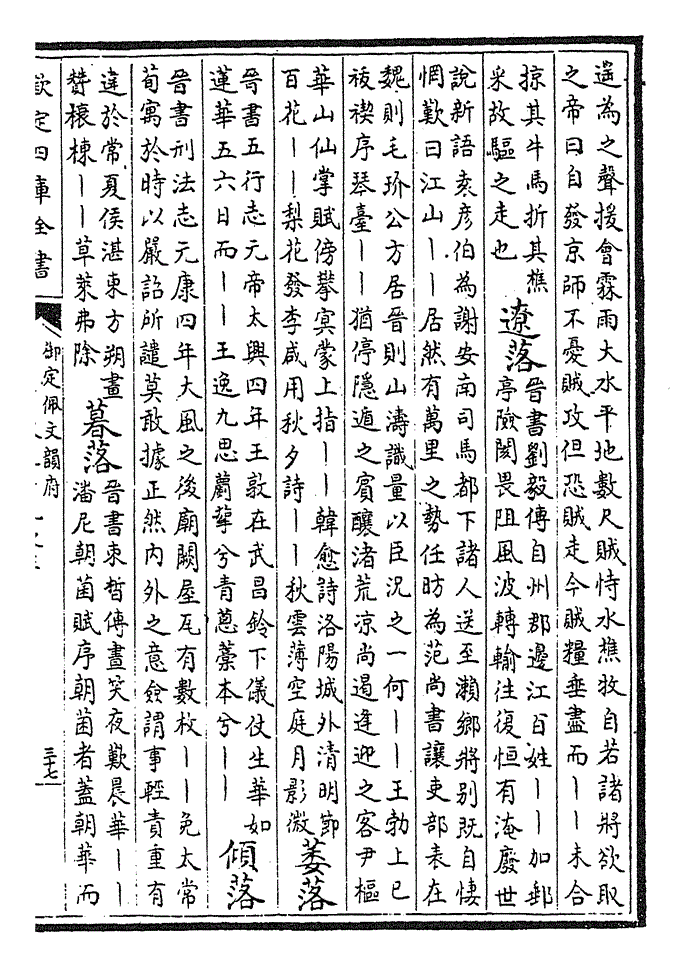 遥為之聲援會霖雨大水平地數尺賊恃水樵牧自若諸將欲取
之帝曰自發京師不憂賊攻但恐賊走今賊糧垂盡而丨丨未合
掠其牛馬折其樵
采故驅之走也
遼落
晉書劉毅傳自州郡邊江百姓丨丨加郵
亭險閡畏阻風波轉輸往復恒有淹廢世
說新語袁彦伯為謝安南司馬都下諸人送至瀨鄉將别既自悽
惘歎曰江山丨丨居然有萬里之勢任昉為范尚書讓吏部表在
魏則毛玠公方居晉則山濤識量以臣況之一何丨丨王勃上已
祓禊序琴臺丨丨猶停隱遁之賓釀渚荒凉尚遏逢迎之客尹樞
華山仙掌賦傍攀冥蒙上指丨丨韓愈詩洛陽城外清明節
百花丨丨梨花發李咸用秋夕詩丨丨秋雲薄空庭月影微
萎落
晉書五行志元帝太興四年王敦在武昌鈴下儀仗生華如
蓮華五六日而丨丨王逸九思蘮蒘兮青蔥藁本兮丨丨
傾落
晉書刑法志元康四年大風之後廟闕屋瓦有數枚丨丨免太常
荀寓於時以嚴詔所譴莫敢據正然内外之意僉謂事輕責重有
違於常夏侯湛東方朔畫
贊榱棟丨丨草萊弗除
暮落
晉書束晳傳晝笑夜歎晨華丨丨
潘尼朝菌賦序朝菌者蓋朝華而
欽定四庫全書
御定佩文韻府
三十七